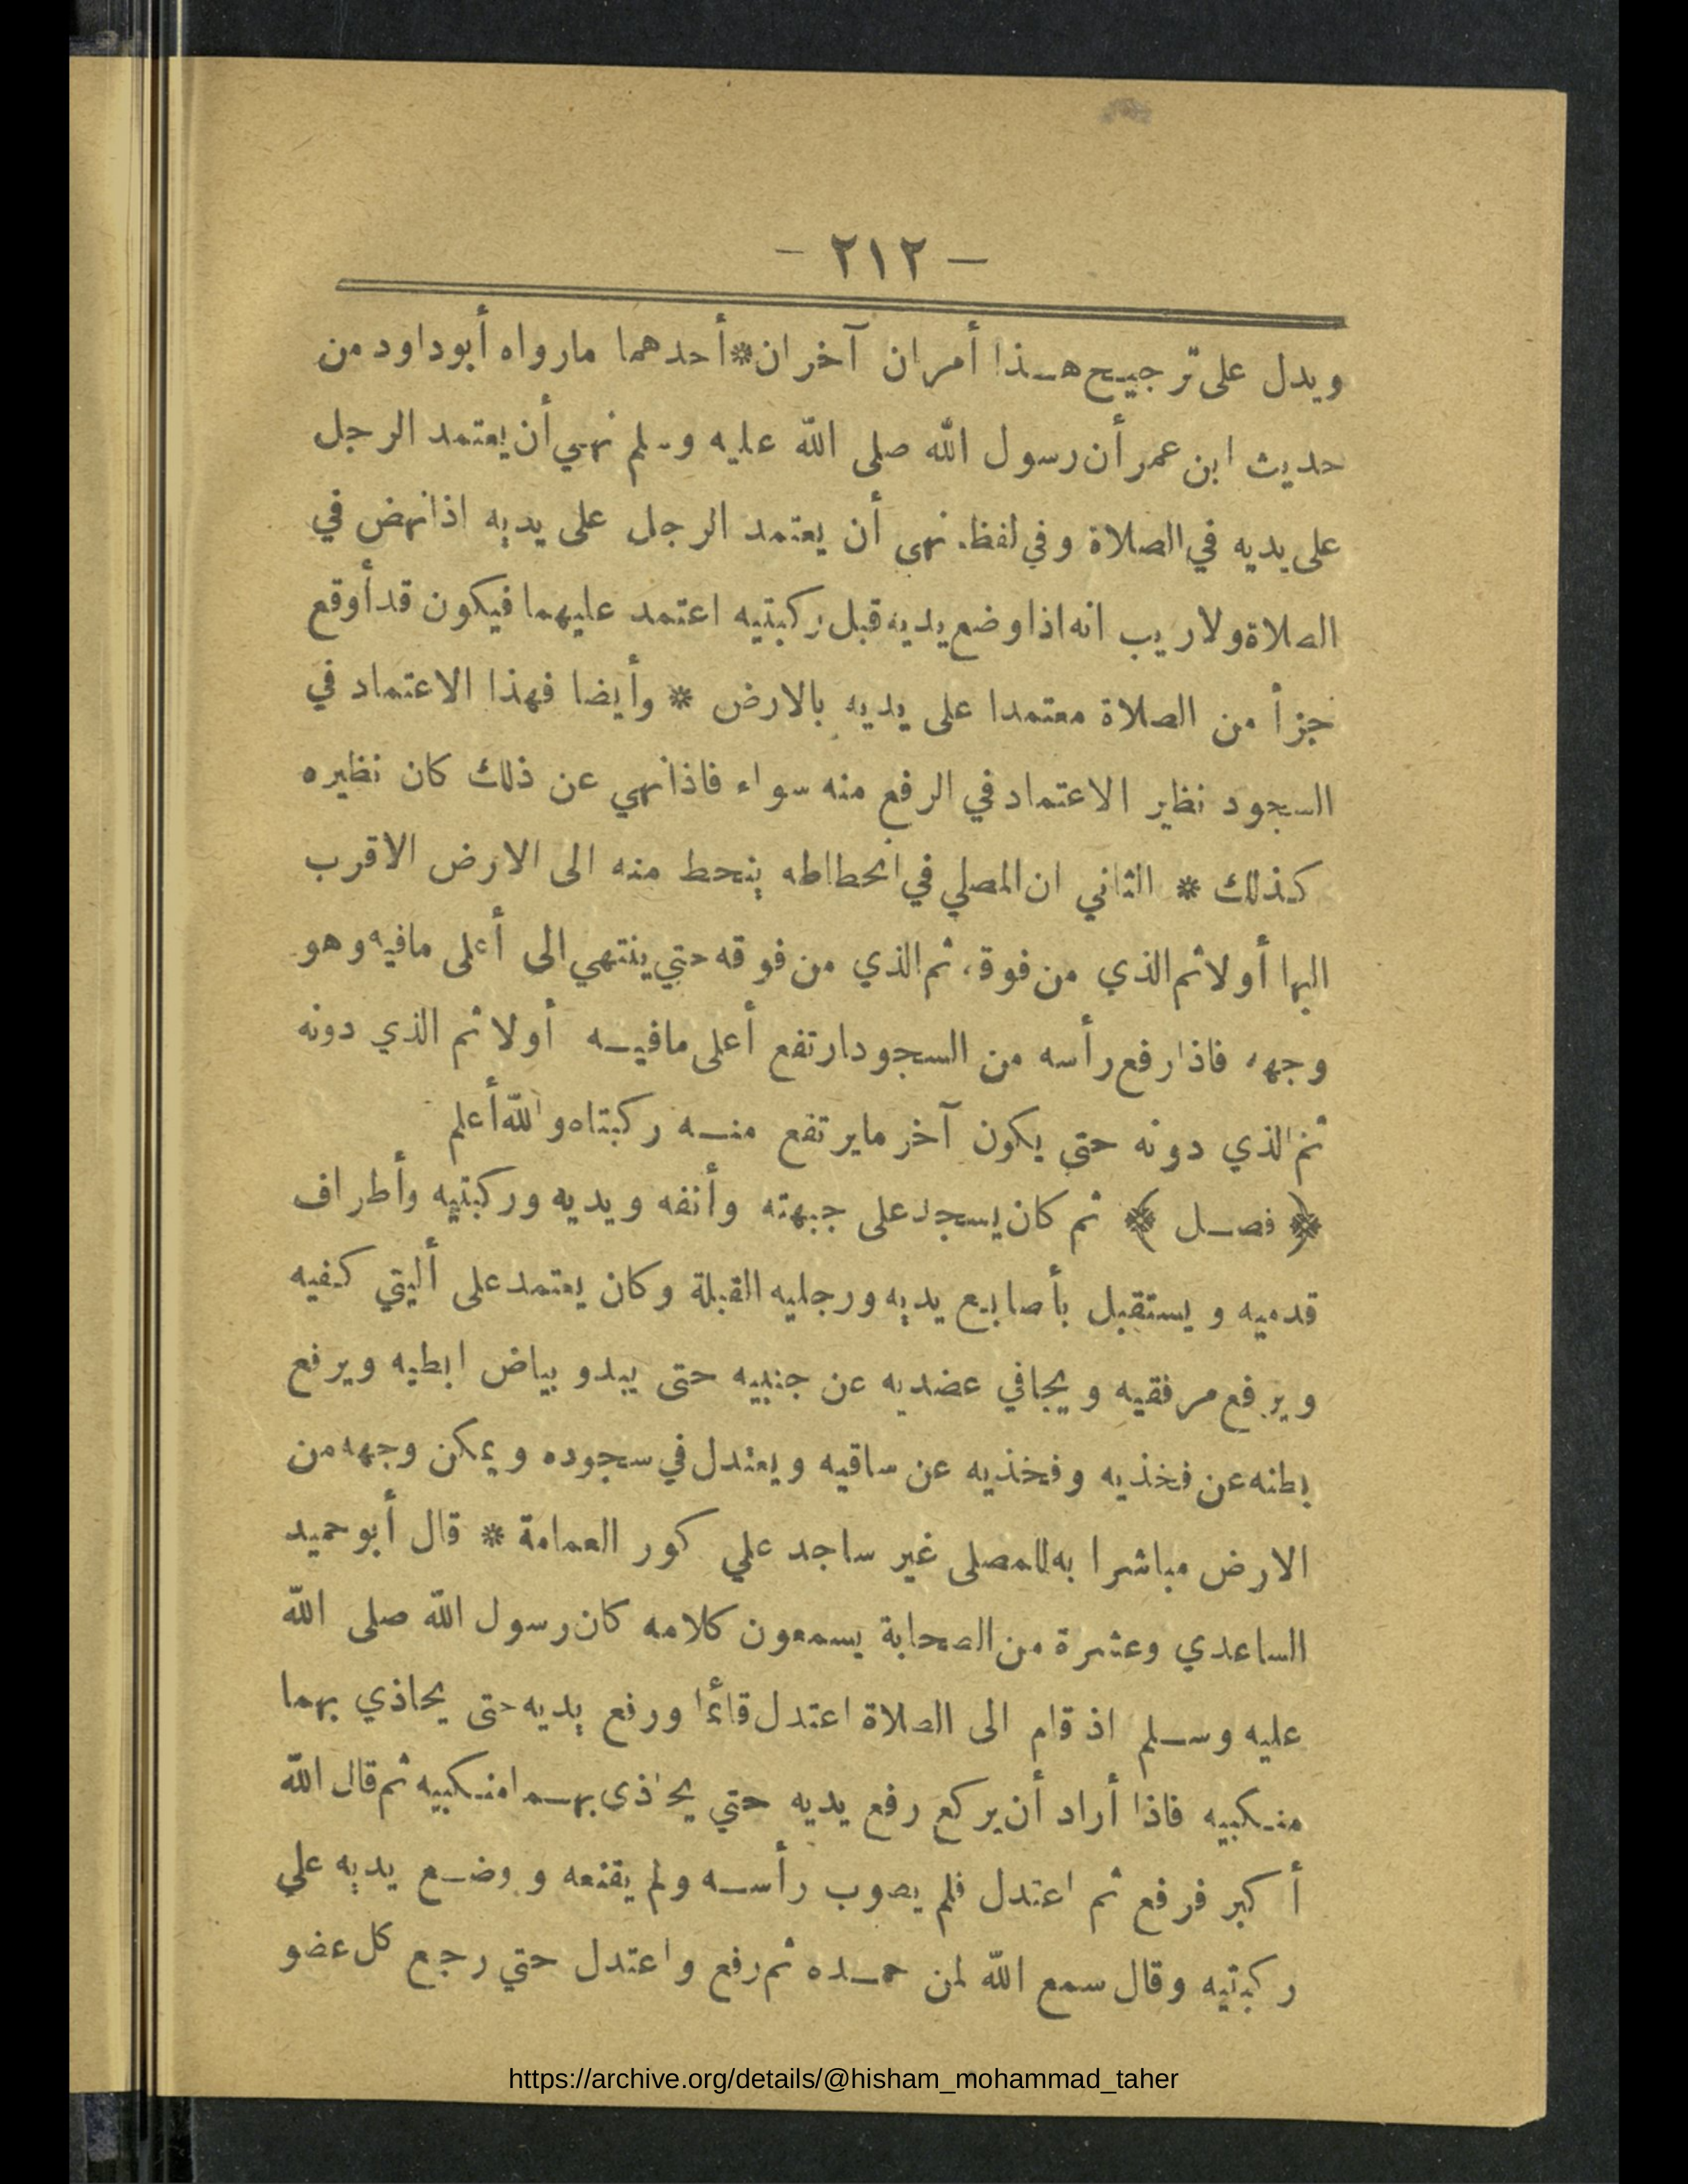 — ٢١٢ —
ويدل على ترجيح هـذا أمران آخران * أحدهما مارواه أبوداود من
حديث ابن عمر أن رسول الله صلى الله عليه وسلم نهي أن يعتمد الرجل
على يديه في الصلاة وفي لفظ نهى أن يعتمد الرجل على يديه اذانهض في
الصلاة ولاريب انه اذا وضع يديه قبل ركبتيه اعتمد عليهما فيكون قد أوقع
جزأ من الصلاة معتمدا على يديه بالارض * وأيضا فهذا الاعتماد في
السجود نظير الاعتماد في الرفع منه سواء فاذانهي عن ذلك كان نظيره
كذلك * الثاني ان المصلي في انحطاطه ينحط منه الى الارض الاقرب
اليها أولاثم الذي من فوقه ثم الذي من فوقه حتي ينتهي الى أعلى مافيه وهو
وجهه فاذا رفع رأسه من السجود ارتفع أعلى مافيـه أولا ثم الذي دونه
ثم الذي دونه حتى يكون آخر مايرتفع منـه ركبتاه والله أعلم
﴿ فصـل ﴾ ثم كان يسجد على جبهته وأنفه ويديه وركبتيه وأطراف
قدميه ويستقبل بأصابع يديه ورجليه القبلة وكان يعتمد على أليتي كفيه
ويرفع مرفقيه ويجافي عضديه عن جنبيه حتى يبدو بياض ابطيه ويرفع
بطنه عن فخذيه وفخذيه عن ساقيه ويعتدل في سجوده ويمكن وجهه من
الارض مباشرا به للمصلى غير ساجد علي كور العمامة * قال أبو حميد
الساعدي وعشرة من الصحابة يسمعون كلامه كان رسول الله صلى الله
عليه وسـلم اذ قام الى الصلاة اعتدل قائما ورفع يديه حتى يحاذي بهما
منـكبيه فاذا أراد أن يركع رفع يديه حتي يحاذى بهـما منـكبيه ثم قال الله
أكبر فرفع ثم اعتدل فلم يصوب رأسـه ولم يقنعه ووضـع يديه علي
ركبتيه وقال سمع الله لمن حمـده ثم رفع واعتدل حتي رجع كل عضو
https://archive.org/details/@hisham_mohammad_taher